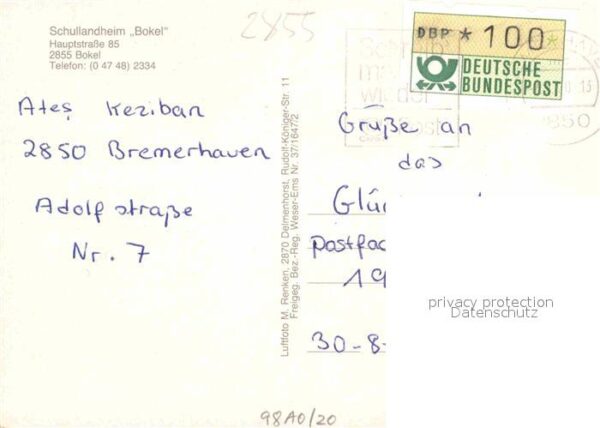 Schullandheim „Bokel"
Hauptstraße 85
2855 Bokel
Telefon: (0 47 48) 2334
2855
DBP * 100
DEUTSCHE
BUNDESPOST
wieder
Ateş Keziban
2850 Bremerhaven
Adolfstraße
Nr. 7
Luftfoto M. Renken, 2870 Delmenhorst, Rudolf-Königer-Str. 11
Freigeg. Bez.-Reg. Weser-Ems Nr. 37/1647/2
Grüße an
das
Glü
Postfac
19
30-8-
privacy protection
Datenschutz
98A0/20